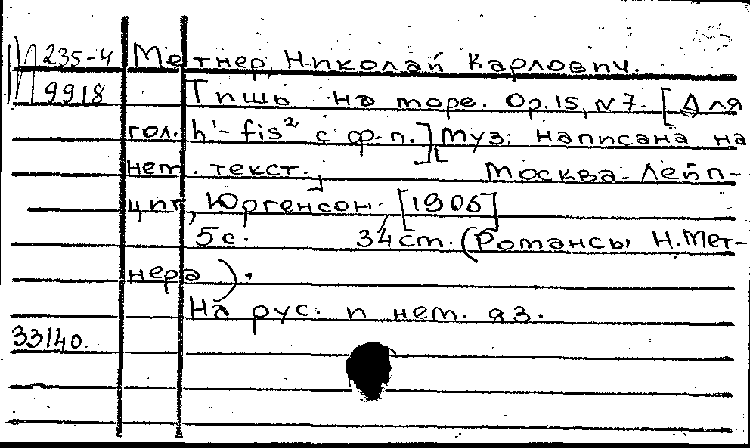 П 235-4 Метнер, Николай Карлович.
9918 Тишь на море. Op.15, N7. [Для
гол. h'-fis² с ф-п.] [Муз. написана на
нем. текст.] Москва-Лейп-
циг, Юргенсон, [1906]
5с. 34 cm. (Романсы Н. Мет-
нера).
На рус. и нем. яз.
33140.